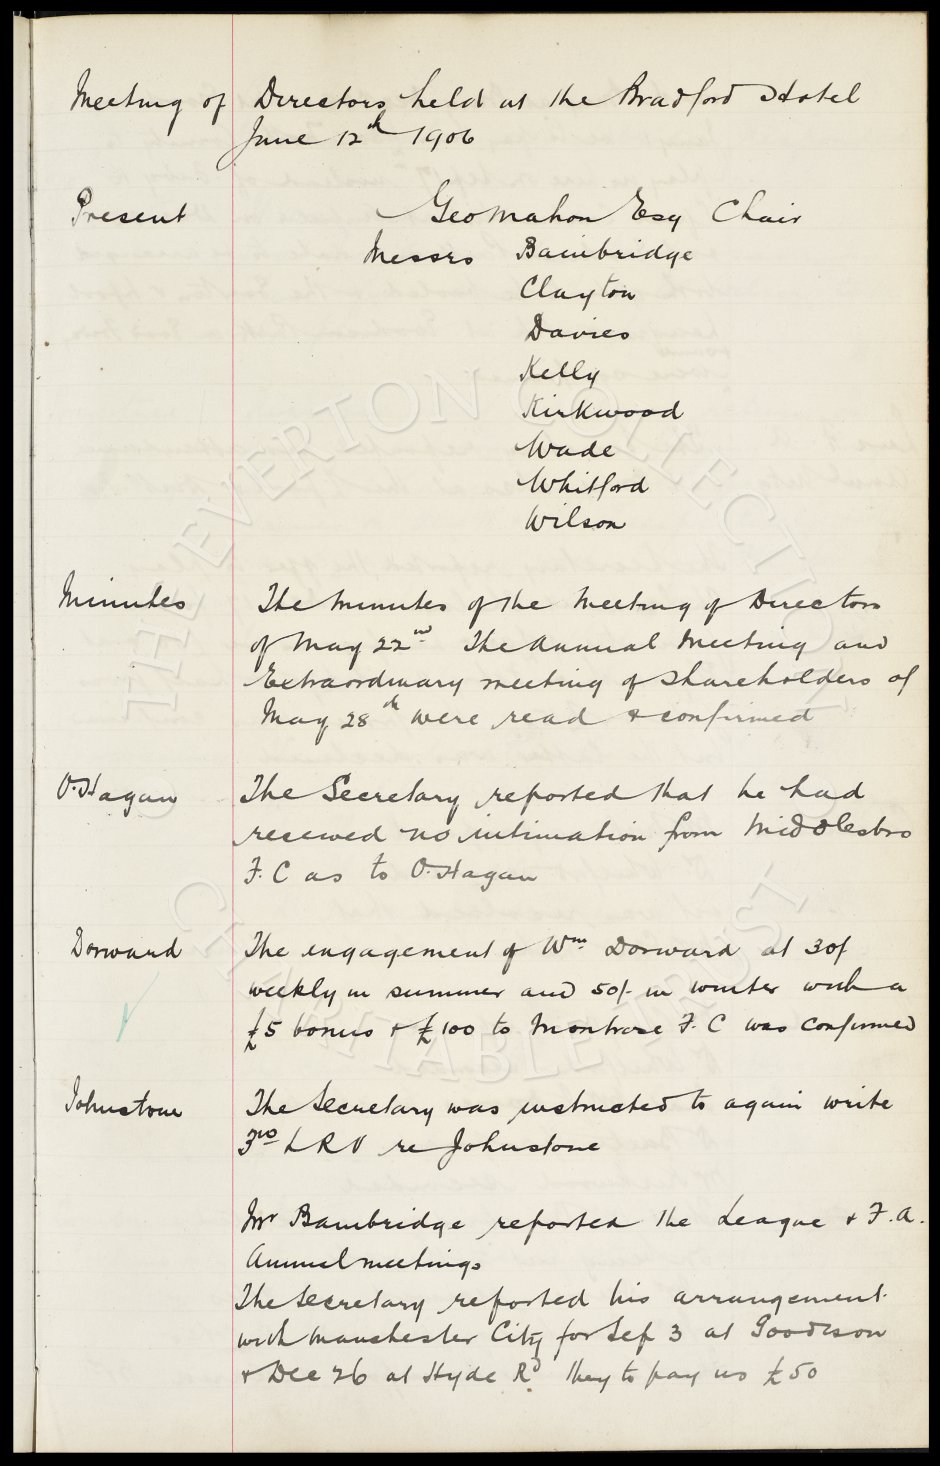 Meeting of Directors held at the Bradford Hotel
June 12th 1906
Present Geo Mahon Esq Chair
Messrs Bainbridge
Clayton
Davies
Kelly
Kirkwood
Wade
Whitford
Wilson
Minutes The Minutes of the Meeting of Directors
of May 22nd The Annual Meeting and
Extraordinary meeting of Shareholders of
May 28th were read & confirmed
O'Hagan The Secretary reported that he had
received no intimation from Middlesbro
F.C as to O'Hagan
Dorward The engagement of Wm Dorward at 30/
weekly in summer and 50/- in winter with a
£5 bonus & £100 to Montrose F.C was confirmed
Johnstone The Secretary was instructed to again write
3rd LRV re Johnstone
Mr Bainbridge reported the League & F.A.
Annual meetings
The Secretary reported his arrangement
with Manchester City for Sep 3 at Goodison
& Dec 26 at Hyde Rd. They to pay us £50
THE EVERTON COLLECTION
CHARITABLE TRUST